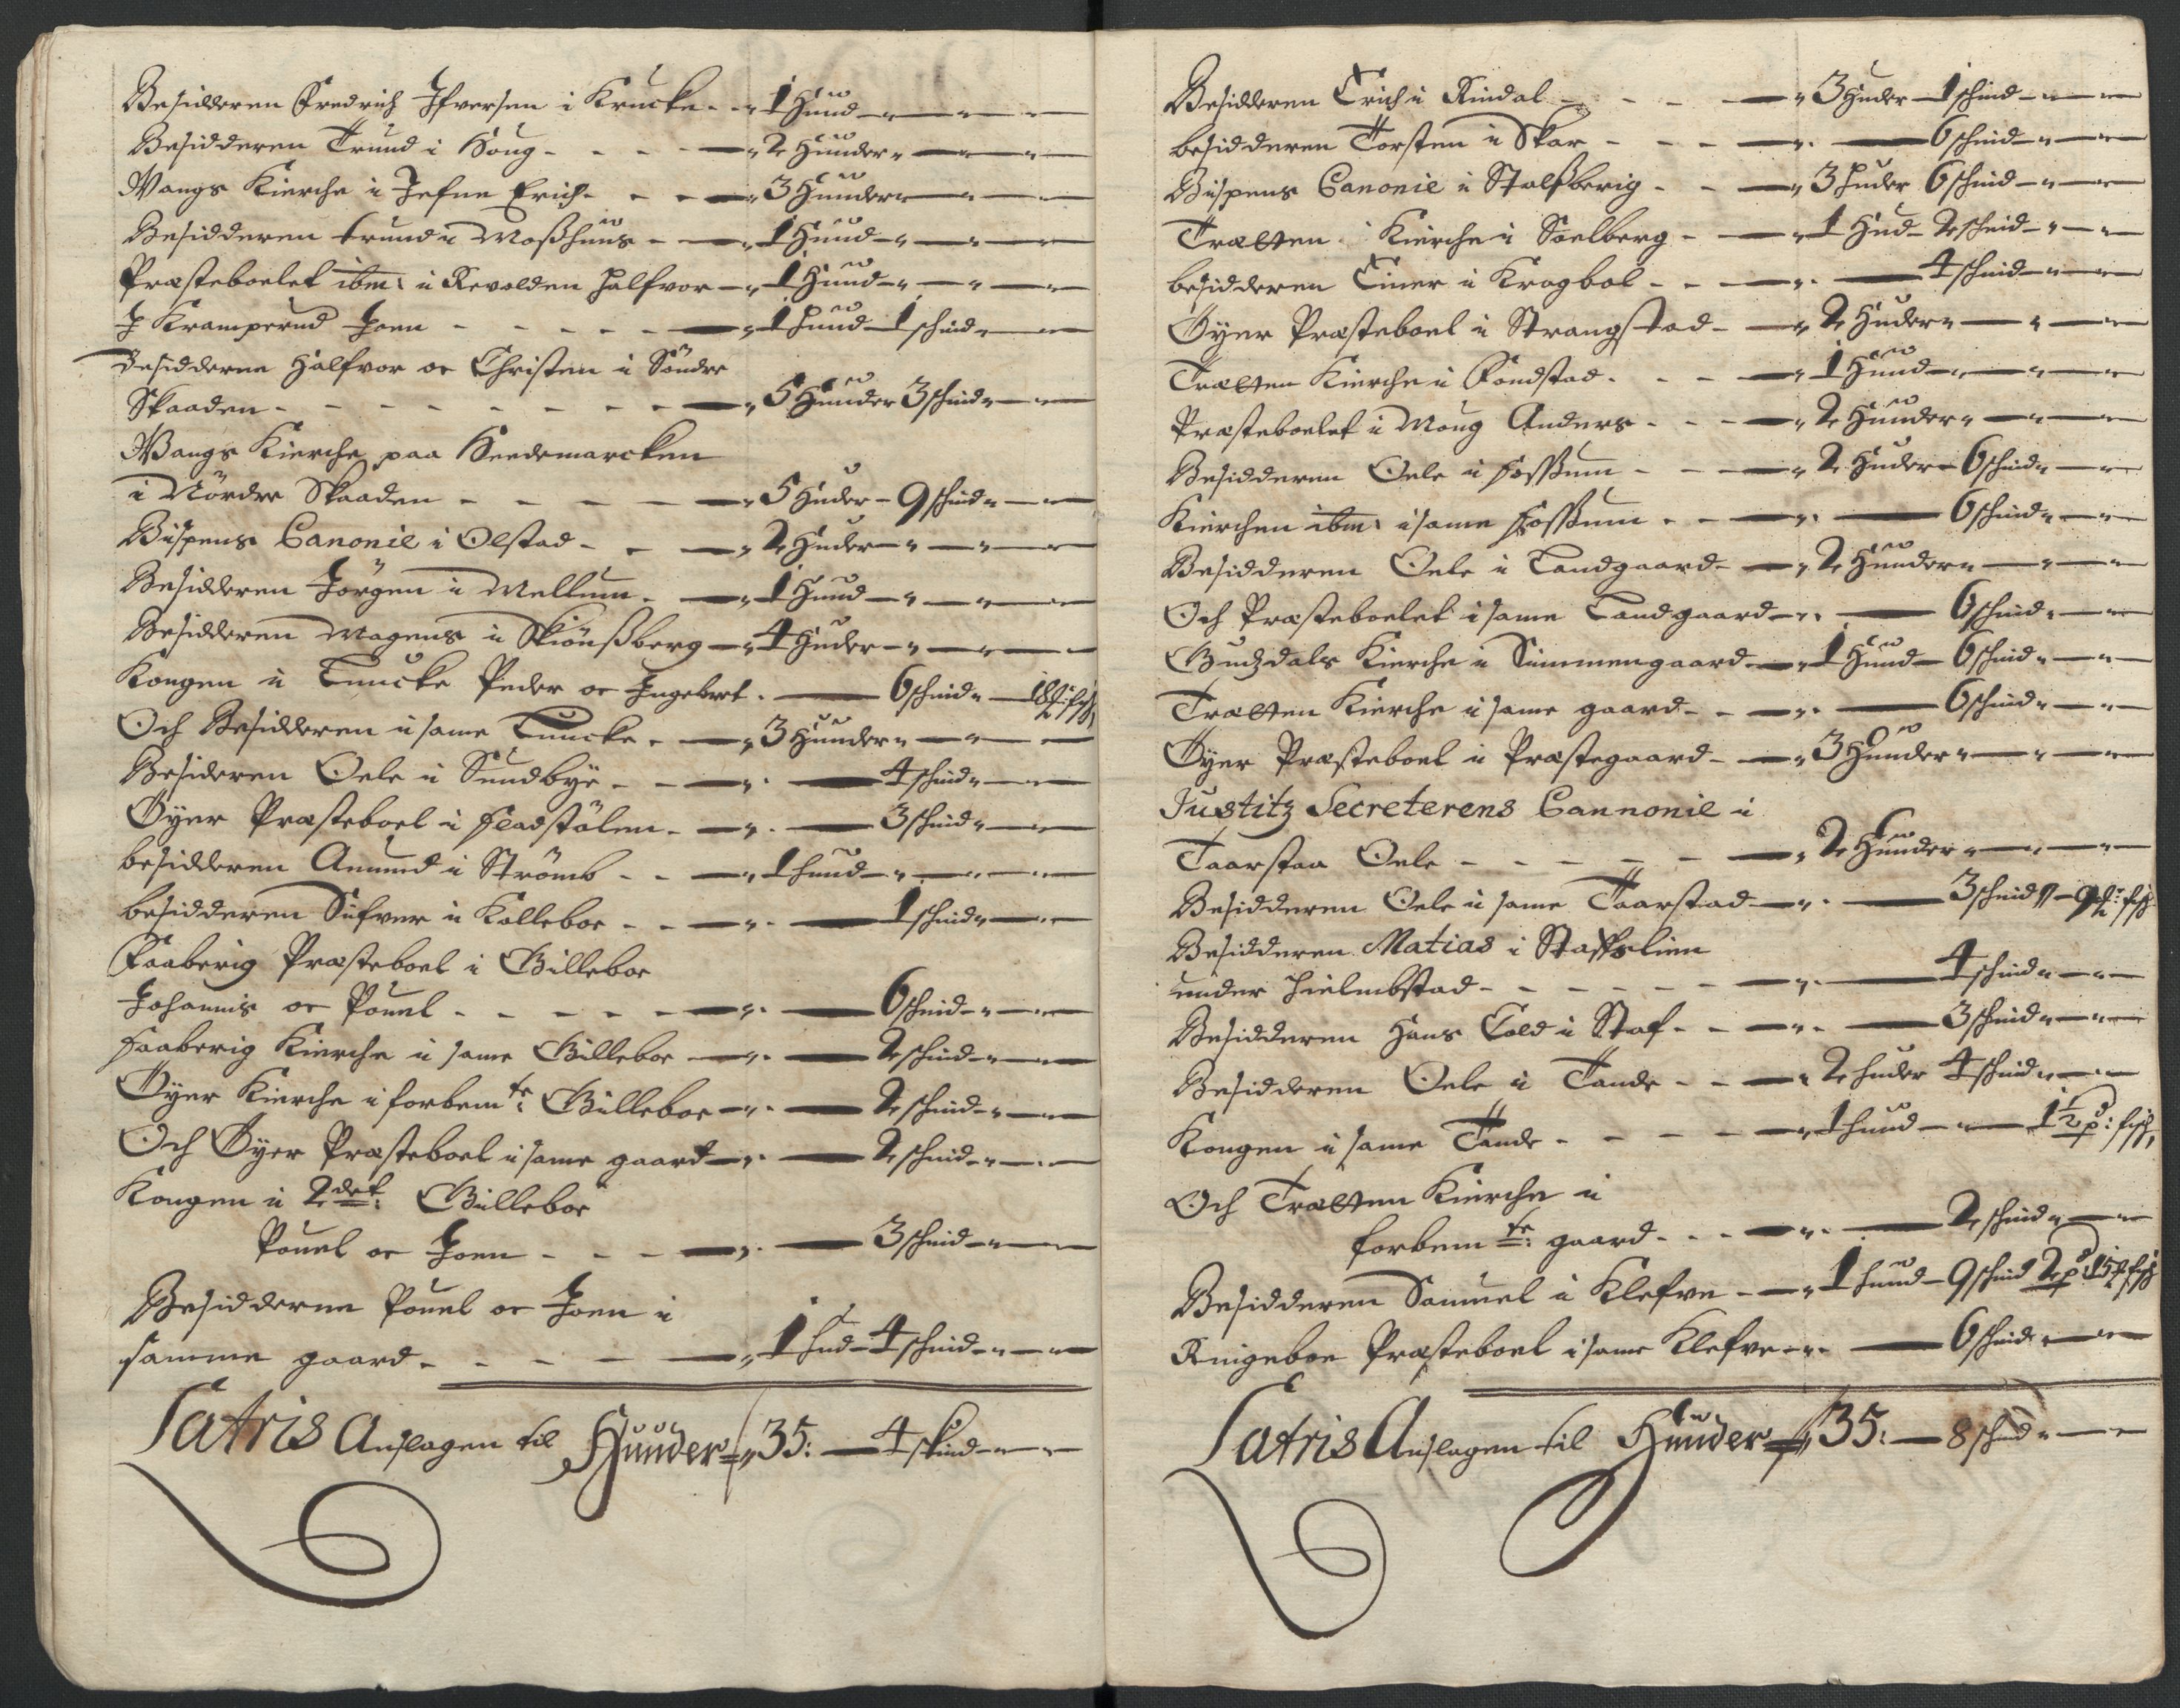 Besidderen Fredrich Ifversen i Krucke - - „ 1 Huud - „ - „ -
Besidderen Trund i Houg - - - - „ 2 Huuder „ - „ -
Wangs Kierche i Jefne Erich - - - „ 3 Huuder „ - „ -
Besidderen Trund i Moßhuus - - „ 1 Huud - „ - „ -
Præsteboelet ibm: i Revolden Halfvor - „ 1 Huud - „ - „ -
I Kramperud Joen - - - - - „ 1 Huud - 1 schind „ -
Besidderne Halfvor oc Christen i Söndre
Skaaden - - - - - - - - „ 5 Huuder 3 schind „ -
Wangs Kierche paa Heedemarcken
i Nördre Skaaden - - - - - „ 5 Huder - 9 schind „ -
Bispens Canonie i Olstad - - - „ 2 Huder - „ - „ -
Besidderen Jörgen i Mellum - - „ 1 Huud - „ - „ -
Besidderen Magens i Skiönßberg - „ 4 Huder - „ - „ -
Kongen i Tuucke Peder oc Ingebret - - 6 schind „ - 18 fisch
Och Besidderen i same Tuucke - - „ 3 Huuder „ - „ -
Besideren Oele i Sundbye - - - „ - 4 schind „ -
Öyer Præsteboel i Fladstölen - - „ - 3 schind „ -
besidderen Amund i Strömb - - - „ 1 huud - „ - „ -
besidderen Sifver i Kolleboe - - - „ - 1 schind „ -
Faaberig Præsteboel i Billeboe
Johannis oc Pouel - - - - - „ - 6 schind - „ -
Faaberig Kierche i same Billeboe - „ - 2 schind - „ -
Öyer Kierche i forbemte: Billeboe - „ - 2 schind - „ -
Och Öyer Præsteboel i same gaard - „ - 2 schind - „ -
Kongen i 2det: Billeboe
Pouel oc Joen - - - - „ - 3 schind - „ -
Besidderne Pouel oc Joen i
samme gaard - - - - - „ 1 hud - 4 schind - „ -
Latris Anslagen til Huuder „ 35: - 4 skind - „ -
Besidderen Erich i Rindal - - - - „ 3 Huder - 1 schind - „ -
besidderen Torsten i Skar - - - - „ - 6 schind - „ -
Bispens Canonie i Stalßberig - - - „ 3 Huder 6 schind - „ -
Trætten Kierche i Soelberg - - „ 1 Hud - 2 schind - „ -
besidderen Einer i Kragbol - - - „ - 4 schind - „ -
Öyer Præsteboel i Strangstad - - „ 2 Huder „ - „ -
Trætten Kierche i Fondstad - - - „ 1 Huud - „ - „ -
Præsteboelet i Moug Anders - - - „ 2 Huuder „ - „ -
Besidderen Oele i Foßum - - - „ 2 Huder - 6 schind „ -
Kierchen ibm: i same Foßum - - - „ - 6 schind „ -
Besidderen Oele i Landgaard - - „ 2 Huuder „ - „ -
Och Præsteboelet i same Landgaard - „ - 6 schind „ -
Budzdals Kierche i Simmengaard - - „ 1 Huud - 6 schind „ -
Trætten Kierche i same gaard - - - „ - 6 schind „ -
Öyer Præsteboel i Præstegaard - - „ 3 Huuder „ - „ -
Justitz Secreterens Cannonie i
Taarstaa Oele - - - - - - „ 2 Huuder „ - „ -
Besidderen Oele i same Taarstad - „ - 3 schind „ - 9 fisch
Besidderen Matias i Staffslien
under Hielmbstad - - - - - - „ - 4 schind „ -
Besidderen Hans Cold i Staf - - - „ - 3 schind „ -
Besidderen Oele i Tande - - - „ 2 huder 4 schind „ -
Kongen i same Tande - - - - - „ 1 huud - „ - 1½ pd: fisch
Och Trætten Kierche i
forbemte: gaard - - - - „ - 2 schind „ -
Besidderen Samuel i Klefve - - „ 1 huud - 9 schind 2 pd: 15 fisch
Ringeboe Præsteboel i same Klefve - „ - 6 schind „ -
Latris Anslagen til Huuder „ 35: - 8 schind „ -